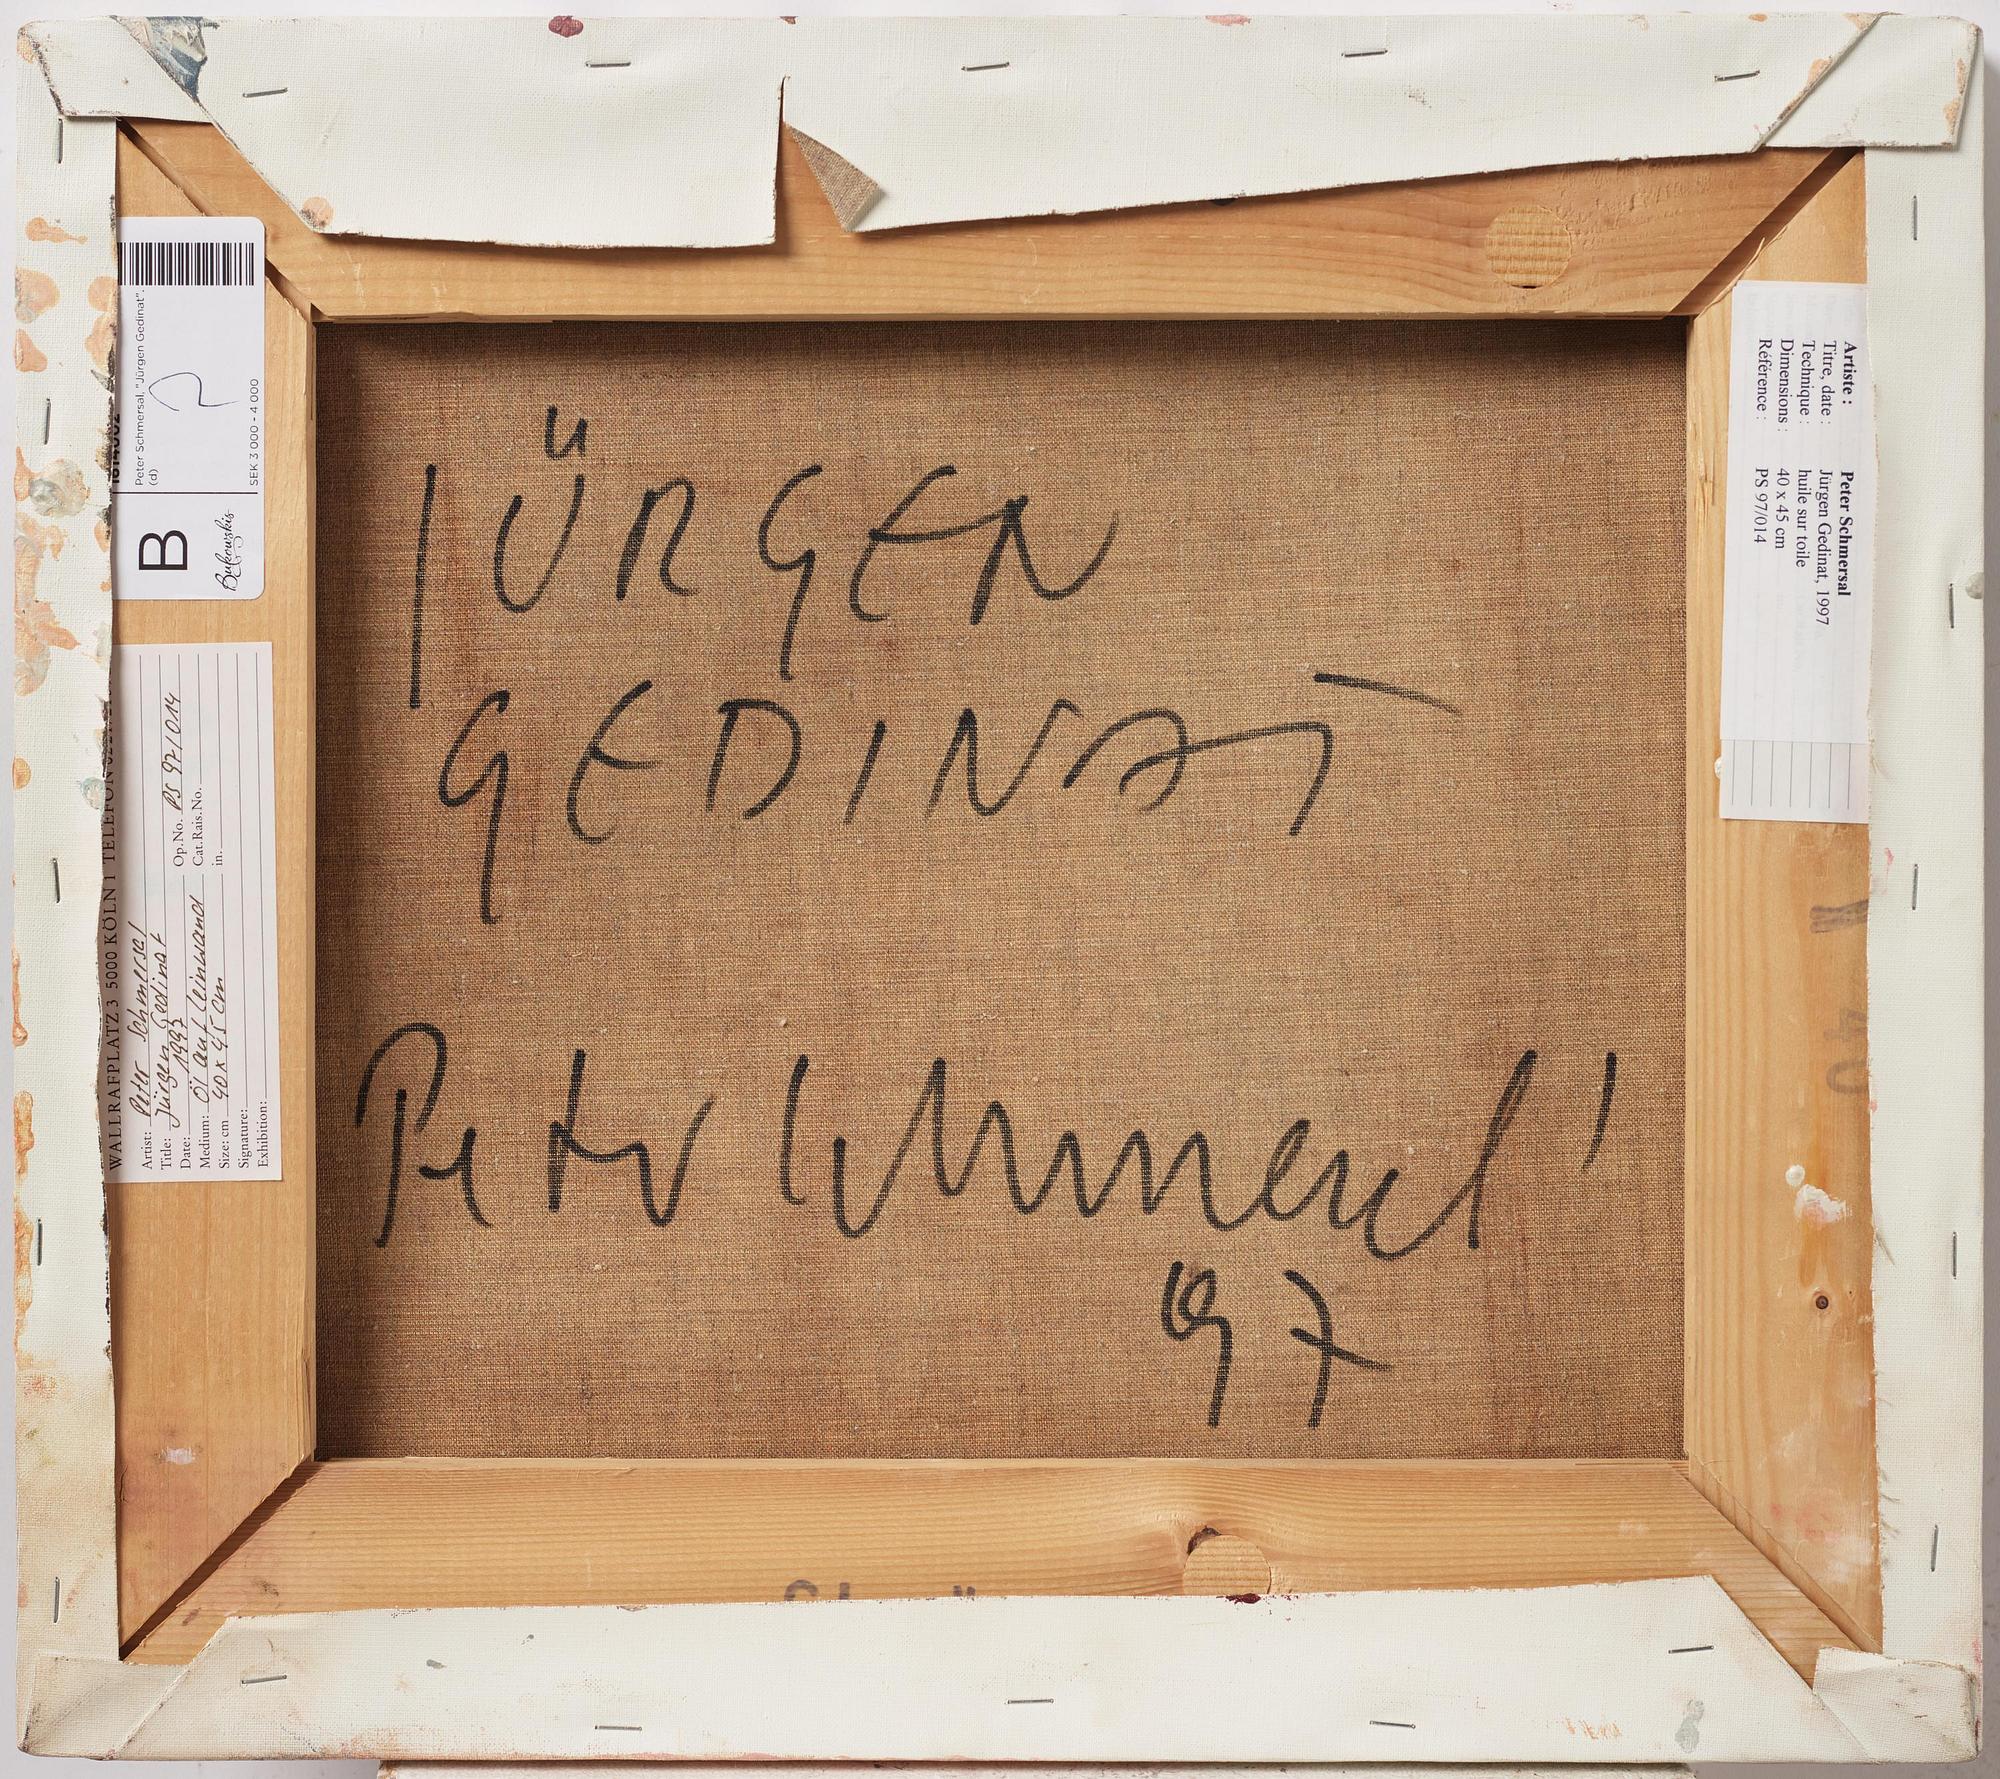 JÜRGEN
GEDINAT
Peter Schmersal
97
Peter Schmersal, "Jürgen Gedinat".
(d)
SEK 3 000 - 4 000
B
Bukowskis
WALLRAFPLATZ 3 5000 KÖLN 1 TELEFON
Artist: Peter Schmersal
Title: Jürgen Gedinat
Date: 1997 Op.No. PS 97/014
Medium: Öl auf Leinwand Cat.Rais.No.
Size: cm 40 x 45 cm in.
Signature:
Exhibition:
Artiste : Peter Schmersal
Titre, date : Jürgen Gedinat, 1997
Technique : huile sur toile
Dimensions : 40 x 45 cm
Référence : PS 97/014
40